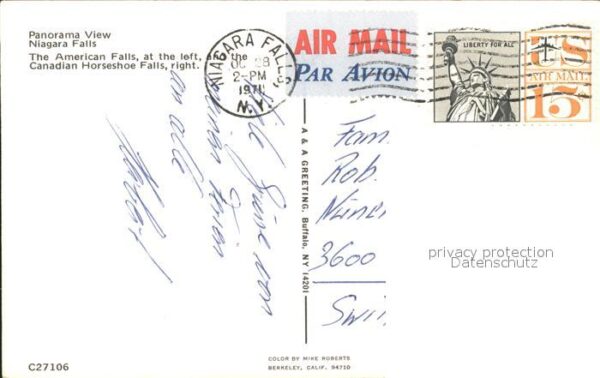 Panorama View
Niagara Falls
The American Falls, at the left, the
Canadian Horseshoe Falls, right.
NIAGARA FALLS
28
2-PM
1971
N.Y.
AIR MAIL
PAR AVION
LIBERTY FOR ALL
US
AIR MAIL
15¢
an alle
A & A GREETING, Buffalo, NY 14201
Fam.
Rob.
3600
privacy protection
Datenschutz
C27106
COLOR BY MIKE ROBERTS
BERKELEY, CALIF. 94710